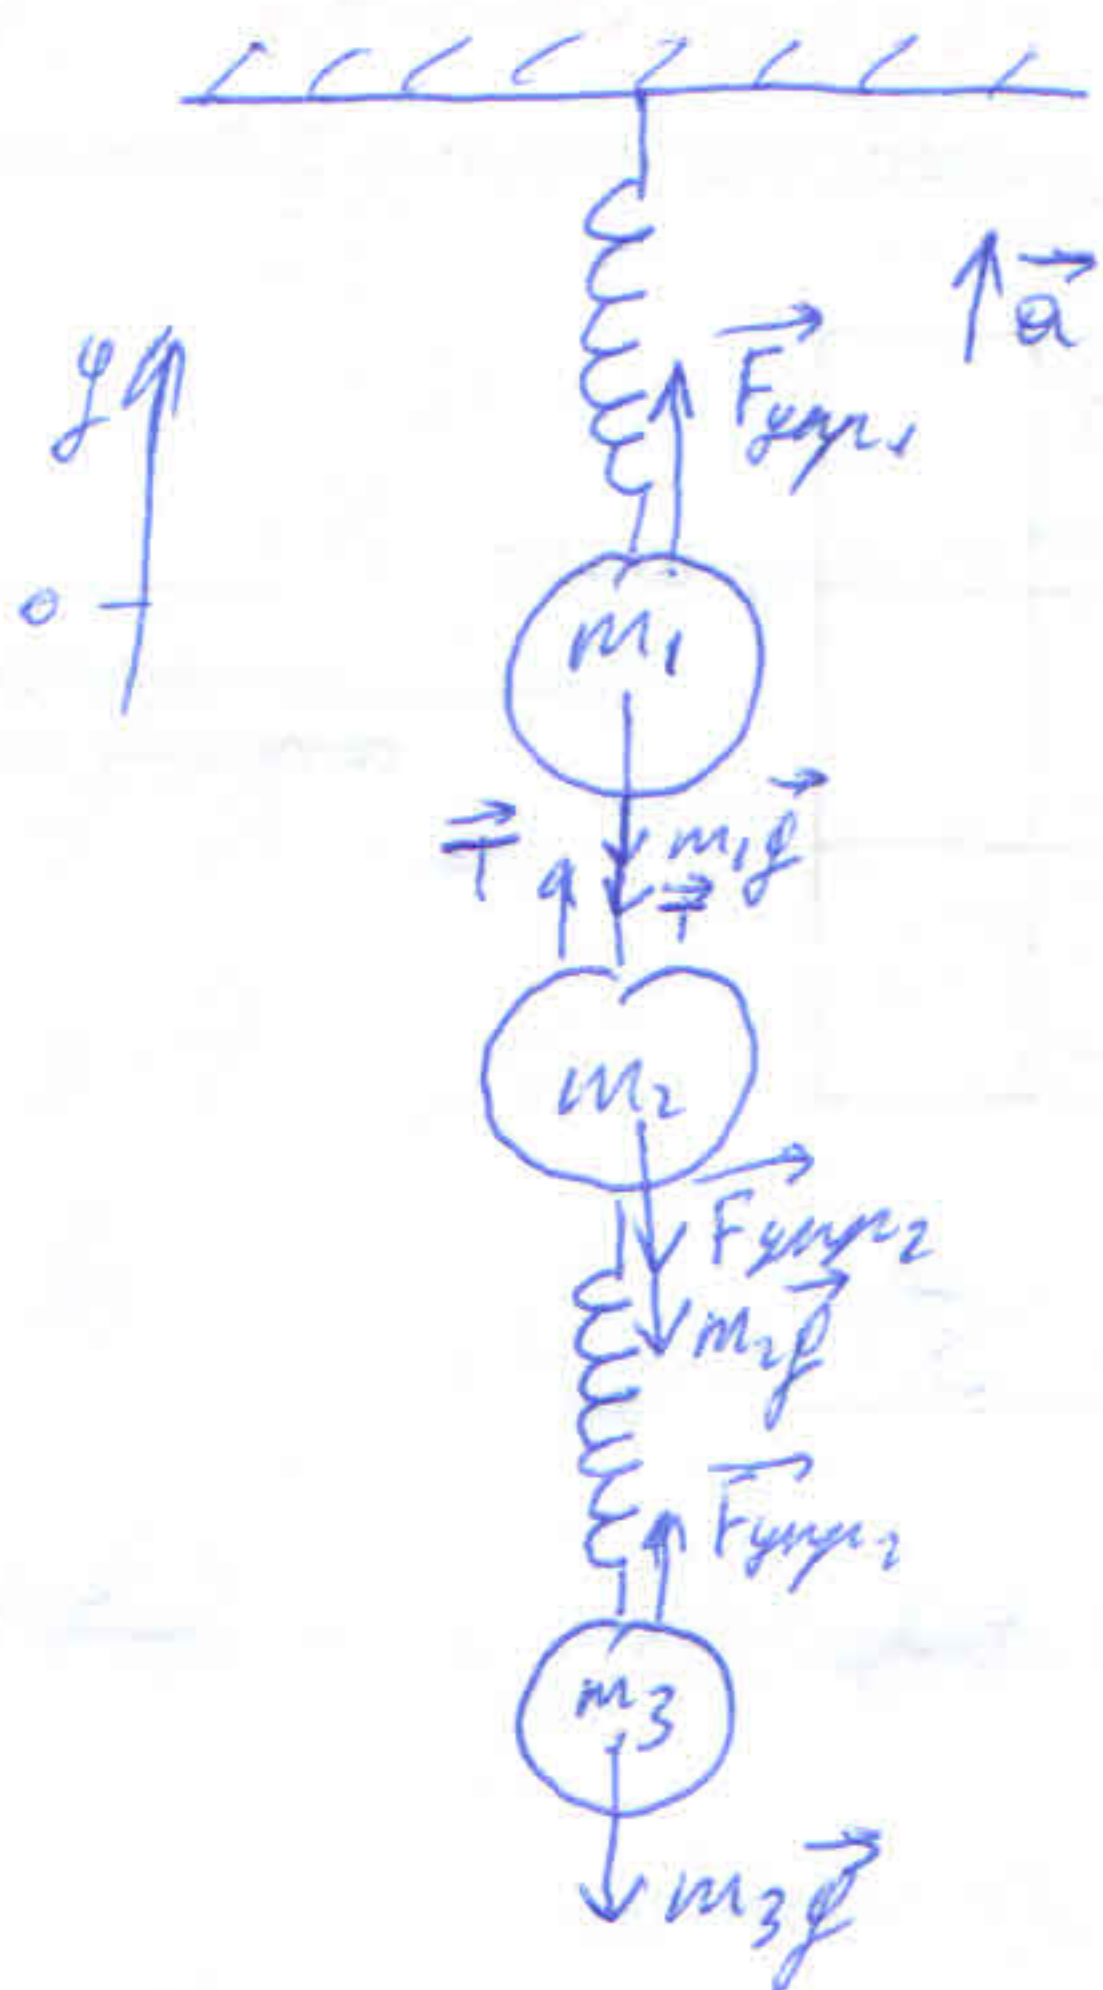 a
Fупр1
y
0
m1
m1g
T
T
m2
Fупр2
m2g
Fупр2
m3
m3g